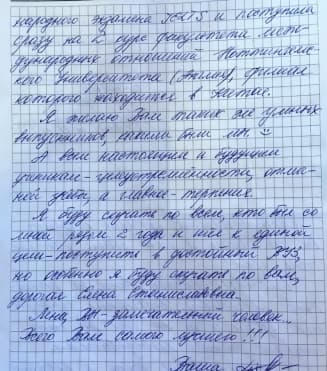 народного экзамена IELTS и поступила
сразу на 2 курс факультета меж-
дународных отношений Ноттингемс-
кого Университета (Англия), филиал
которого находится в Китае.
Я желаю Вам таких же умных
выпускников, какими были мы.
А всем настоящим и будущим
ученикам - целеустремленности, отлич-
ной учебы, а главное - терпения.
Я буду скучать по всем, кто был со
мной рядом 2 года и шел к единой
цели - поступить в достойный ВУЗ,
но особенно я буду скучать по вам,
дорогая Елена Станиславовна.
Лена, Вы - замечательный человек...
Всего Вам самого лучшего!!!
Ваша